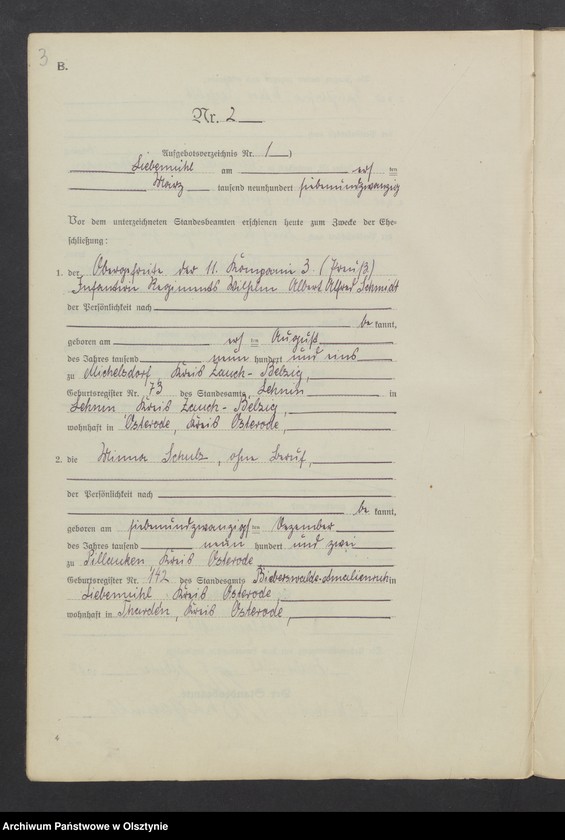 3
B.
Nr. 2
Aufgebotsverzeichnis Nr. 1 )
Liebemühl am ersten
März tausend neunhundert siebenundzwanzig
Vor dem unterzeichneten Standesbeamten erschienen heute zum Zwecke der Ehe-
schließung:
1. der Obergefreite der 11. Kompanie 3. (Preuß)
Infanterie Regiments Wilhelm Albert Alfred Schmidt
der Persönlichkeit nach
be kannt,
geboren am ersten August
des Jahres tausend neun hundert und eins
zu Michelsdorf, Kreis Zauch-Belzig,
Geburtsregister Nr. 173 des Standesamts Lehnin in
Lehnin Kreis Zauch-Belzig,
wohnhaft in Osterode, Kreis Osterode,
2. die Minna Schulz, ohne Beruf,
der Persönlichkeit nach
be kannt,
geboren am siebenundzwanzigsten Dezember
des Jahres tausend neun hundert und zwei
zu Pillauken, Kreis Osterode
Geburtsregister Nr. 142 des Standesamts Bieberswalde-Amalienruh in
Liebemühl Kreis Osterode,
wohnhaft in Tharden, Kreis Osterode,
Archiwum Państwowe w Olsztynie